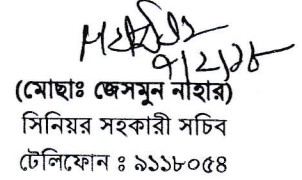 ৭/২/১৮
(মোছাঃ জেসমুন নাহার)
সিনিয়র সহকারী সচিব
টেলিফোন ঃ ৯১১৮০৫৪